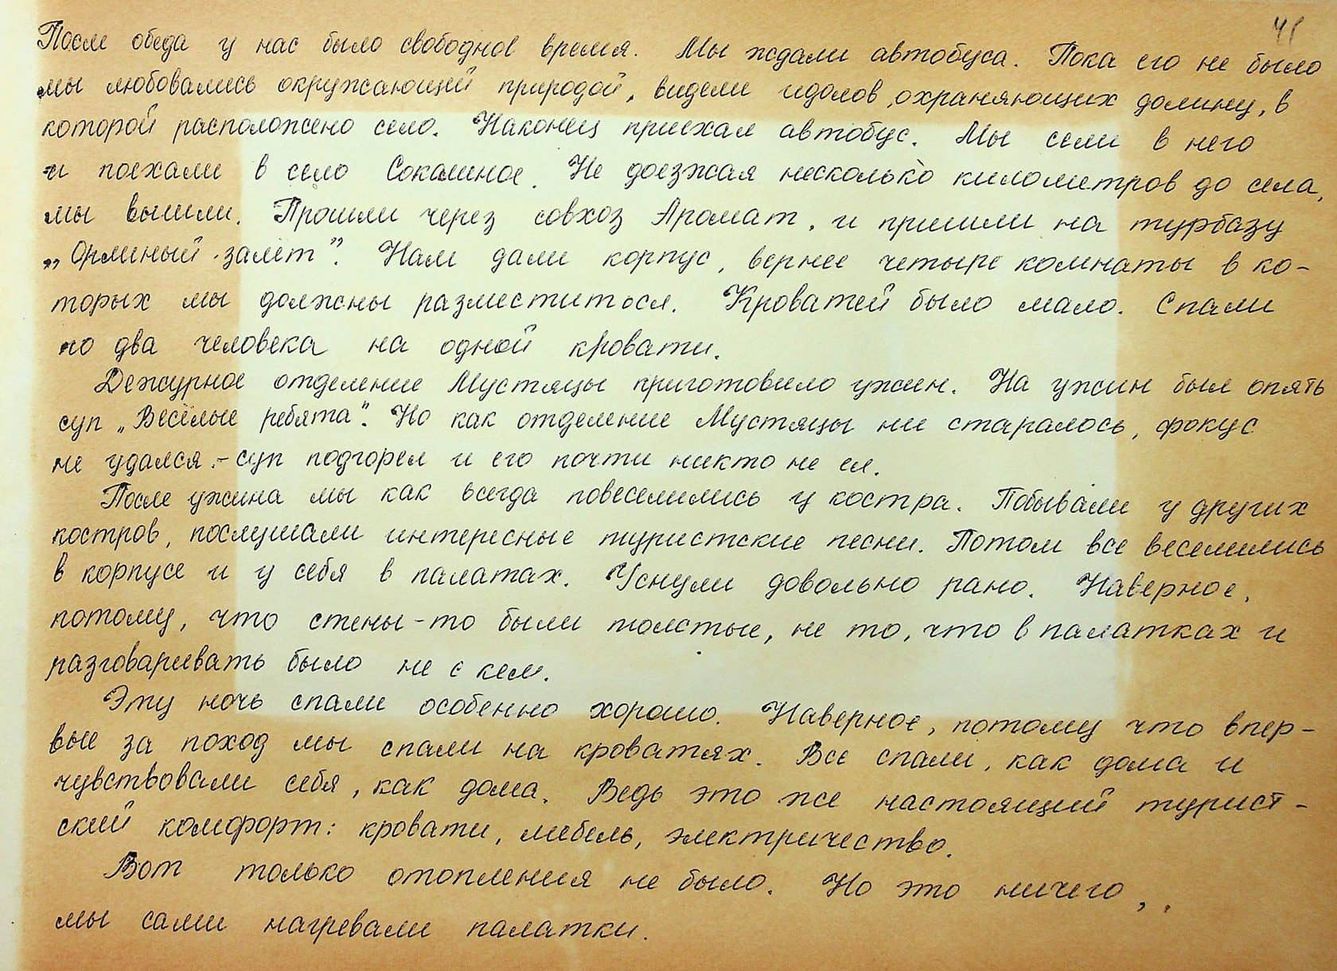 41
После обеда у нас было свободное время. Мы ждали автобуса. Пока его не было
мы любовались окружающей природой, видели идолов, охраняющих долину, в
которой расположено село. Наконец приехал автобус. Мы сели в него
и поехали в село Соколиное. Не доезжая несколько километров до села,
мы вышли. Прошли через совхоз Аромат, и пришли на турбазу
„Орлиный залёт". Нам дали корпус, вернее четыре комнаты в ко-
торых мы должны разместиться. Кроватей было мало. Спали
по два человека на одной кровати.
Дежурное отделение Мустяцы приготовило ужин. На ужин был опять
суп „Весёлые ребята". Но как отделение Мустяцы ни старалось, фокус
не удался - суп подгорел и его почти никто не ел.
После ужина мы как всегда повеселились у костра. Побывали у других
костров, послушали интересные туристские песни. Потом все веселились
в корпусе и у себя в палатах. Уснули довольно рано. Наверное,
потому, что стены-то были толстые, не то, что в палатках и
разговаривать было не с кем.
Эту ночь спали особенно хорошо. Наверное, потому что впер-
вые за поход мы спали на кроватях. Все спали, как дома и
чувствовали себя, как дома. Ведь это же настоящий турист-
ский комфорт: кровати, мебель, электричество.
Вот только отопления не было. Но это ничего,
мы сами нагревали палатки.